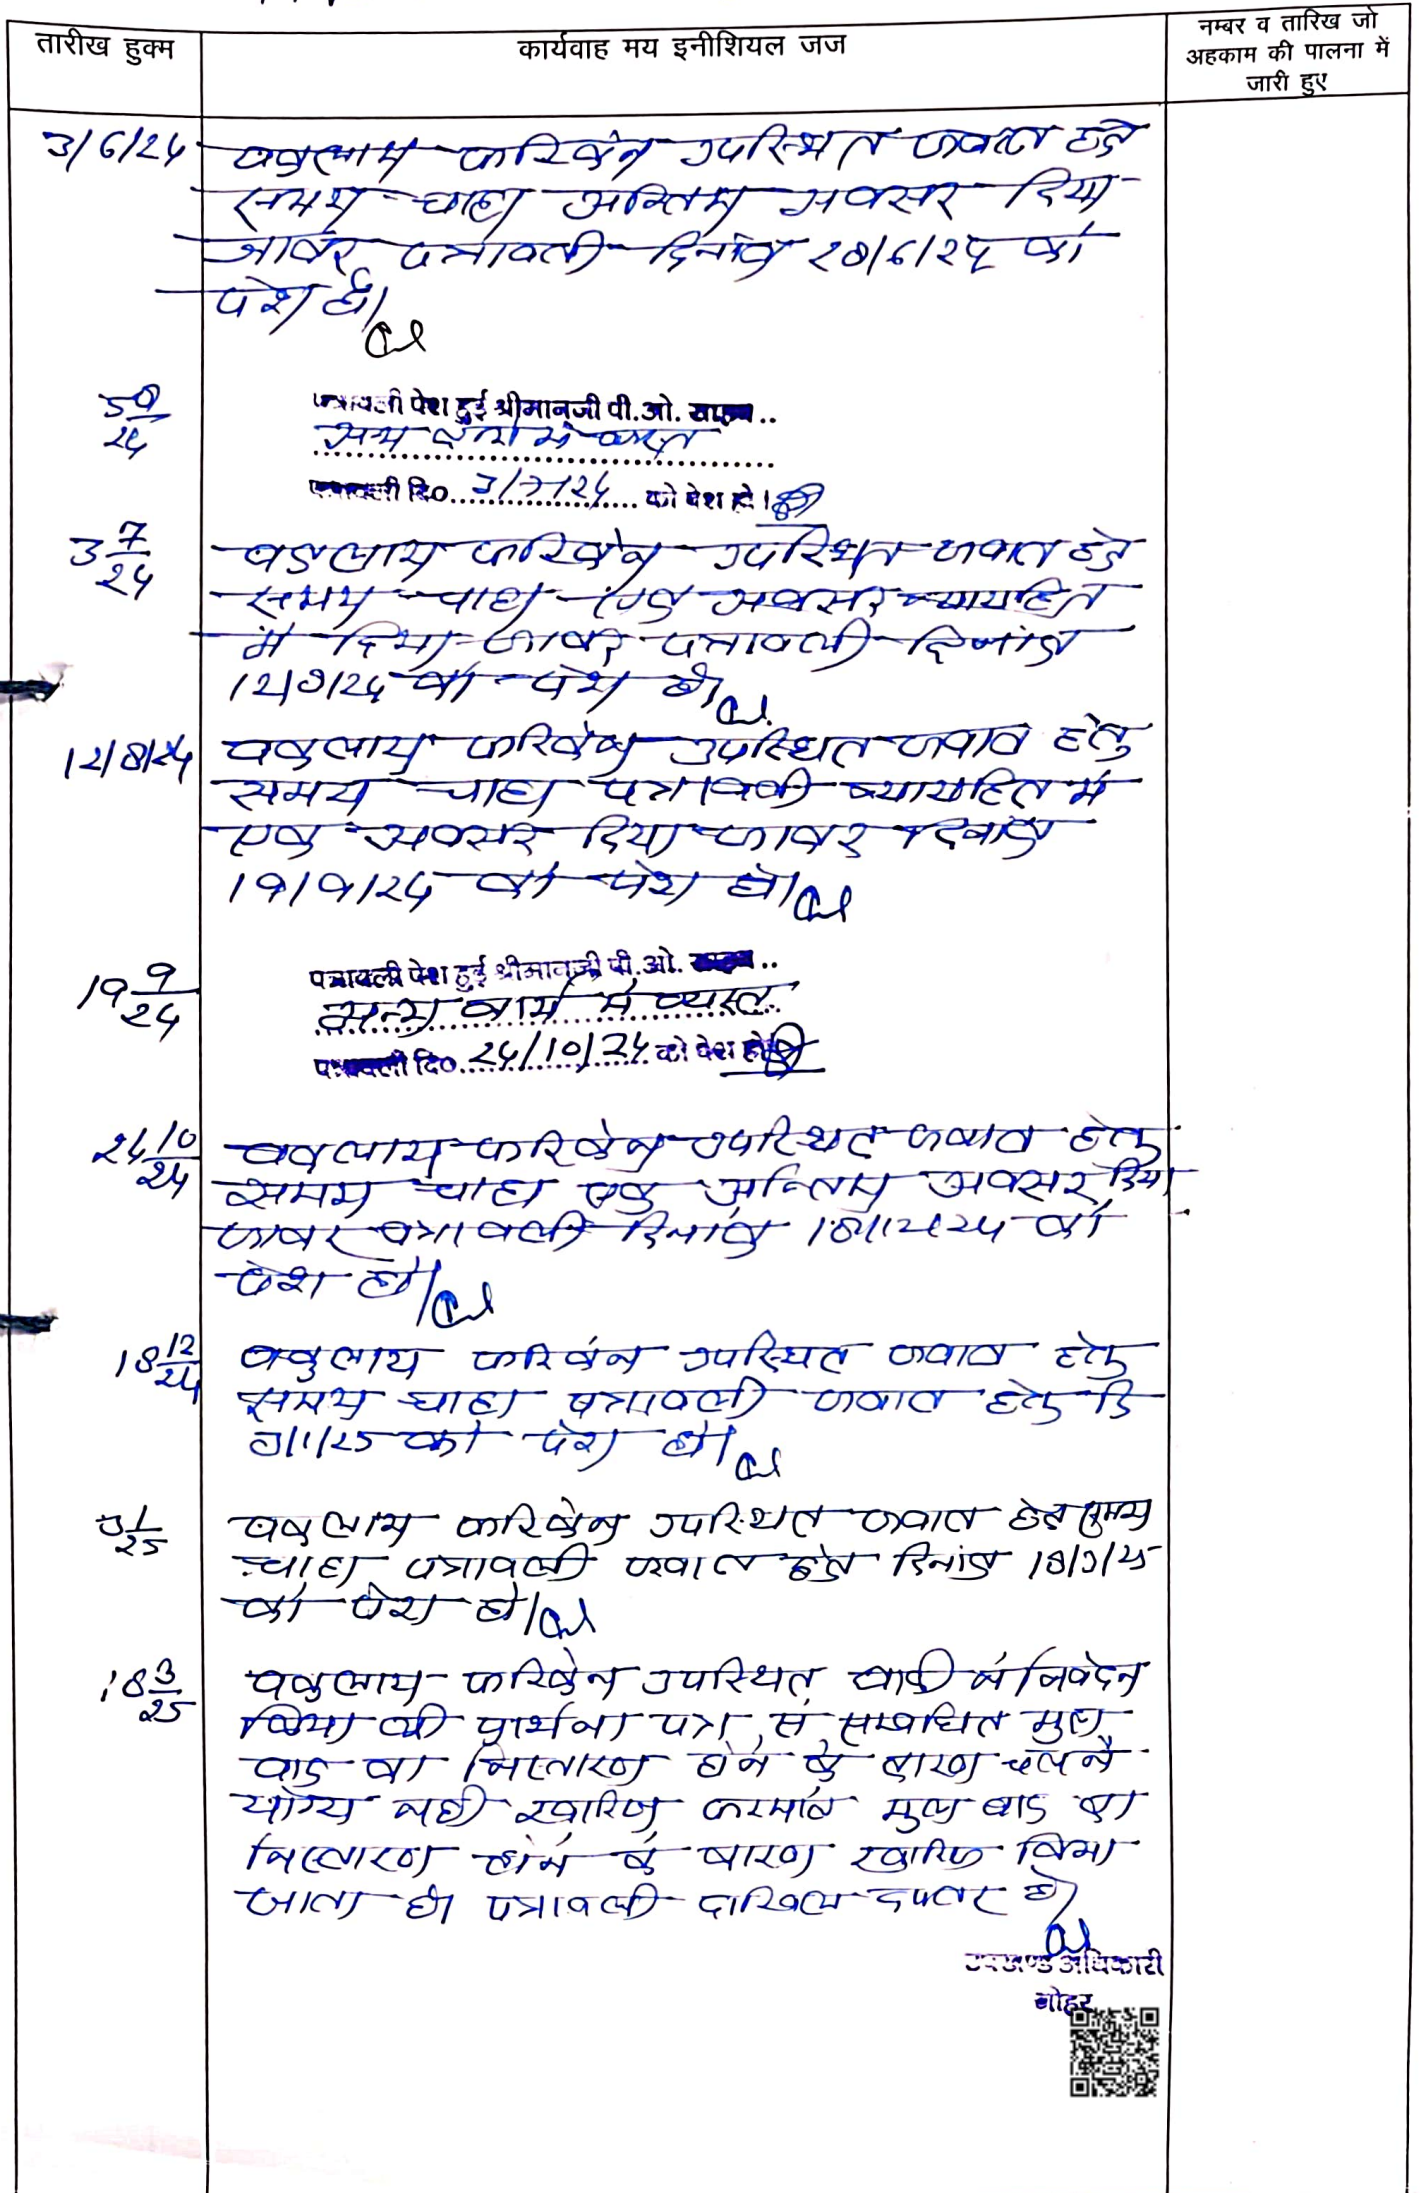 तारीख हुक्म
कार्यवाह मय इनीशियल जज
नम्बर व तारिख जो
अहकाम की पालना में
जारी हुए
3/6/24
वकुलाय फरिकेन उपस्थित जवाब हेतु
समय चाहा अन्तिम अवसर दिया
जाकर पत्रावली दिनांक 28/6/24 को
पेश हो।
24
पत्रावली पेश हुई श्रीमानजी पी.ओ. साहब..
पत्रावली दि० 3/7/24 को पेश हो।
3 7/24
वकुलाय फरिकेन उपस्थित जवाब हेतु
समय चाहा एक अवसर न्यायहित
में दिया जाकर पत्रावली दिनांक
12/8/24 को पेश हो।
12/8/24
वकुलाय फरिकेन उपस्थित जवाब हेतु
समय चाहा पत्रावली न्यायहित में
एक अवसर दिया जाकर दिनांक
19/9/24 को पेश हो।
19 9/24
पत्रावली पेश हुई श्रीमानजी पी.ओ. साहब..
अन्य कार्य में व्यस्त
पत्रावली दि० 24/10/24 को पेश हो
24 10/24
वकुलाय फरिकेन उपस्थित जवाब हेतु
समय चाहा एक अन्तिम अवसर दिया
जाकर पत्रावली दिनांक 18/12/24 को
पेश हो।
18 12/24
वकुलाय फरिकेन उपस्थित जवाब हेतु
समय चाहा पत्रावली जवाब हेतु दि
8/1/25 को पेश हो।
8 1/25
वकुलाय फरिकेन उपस्थित जवाब हेतु समय
चाहा पत्रावली जवाब हेतु दिनांक 18/3/25
को पेश हो।
18 3/25
वकुलाय फरिकेन उपस्थित वादी ने निवेदन
किया की प्रार्थना पत्र से सम्बंधित मुल
वाद का निस्तारण होने के कारण चलने
योग्य नही खारिज फरमावे मुल वाद का
निस्तारण होने के कारण खारिज किया
जाता है। पत्रावली दाखिल दफ्तर हो
उपखण्ड अधिकारी
नोहर